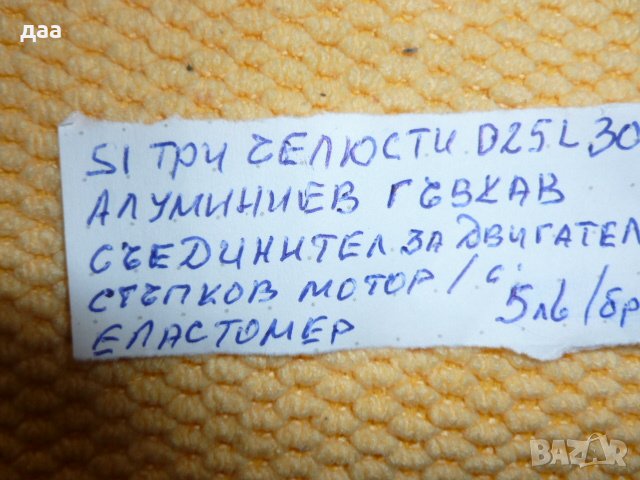 даа
SI ТРИ ЧЕЛЮСТИ D25L30
АЛУМИНИЕВ ГЪВКАВ
СЪЕДИНИТЕЛ ЗА ДВИГАТЕЛ
СТЪПКОВ МОТОР / С.
ЕЛАСТОМЕР 5лв/бр
BAZAR